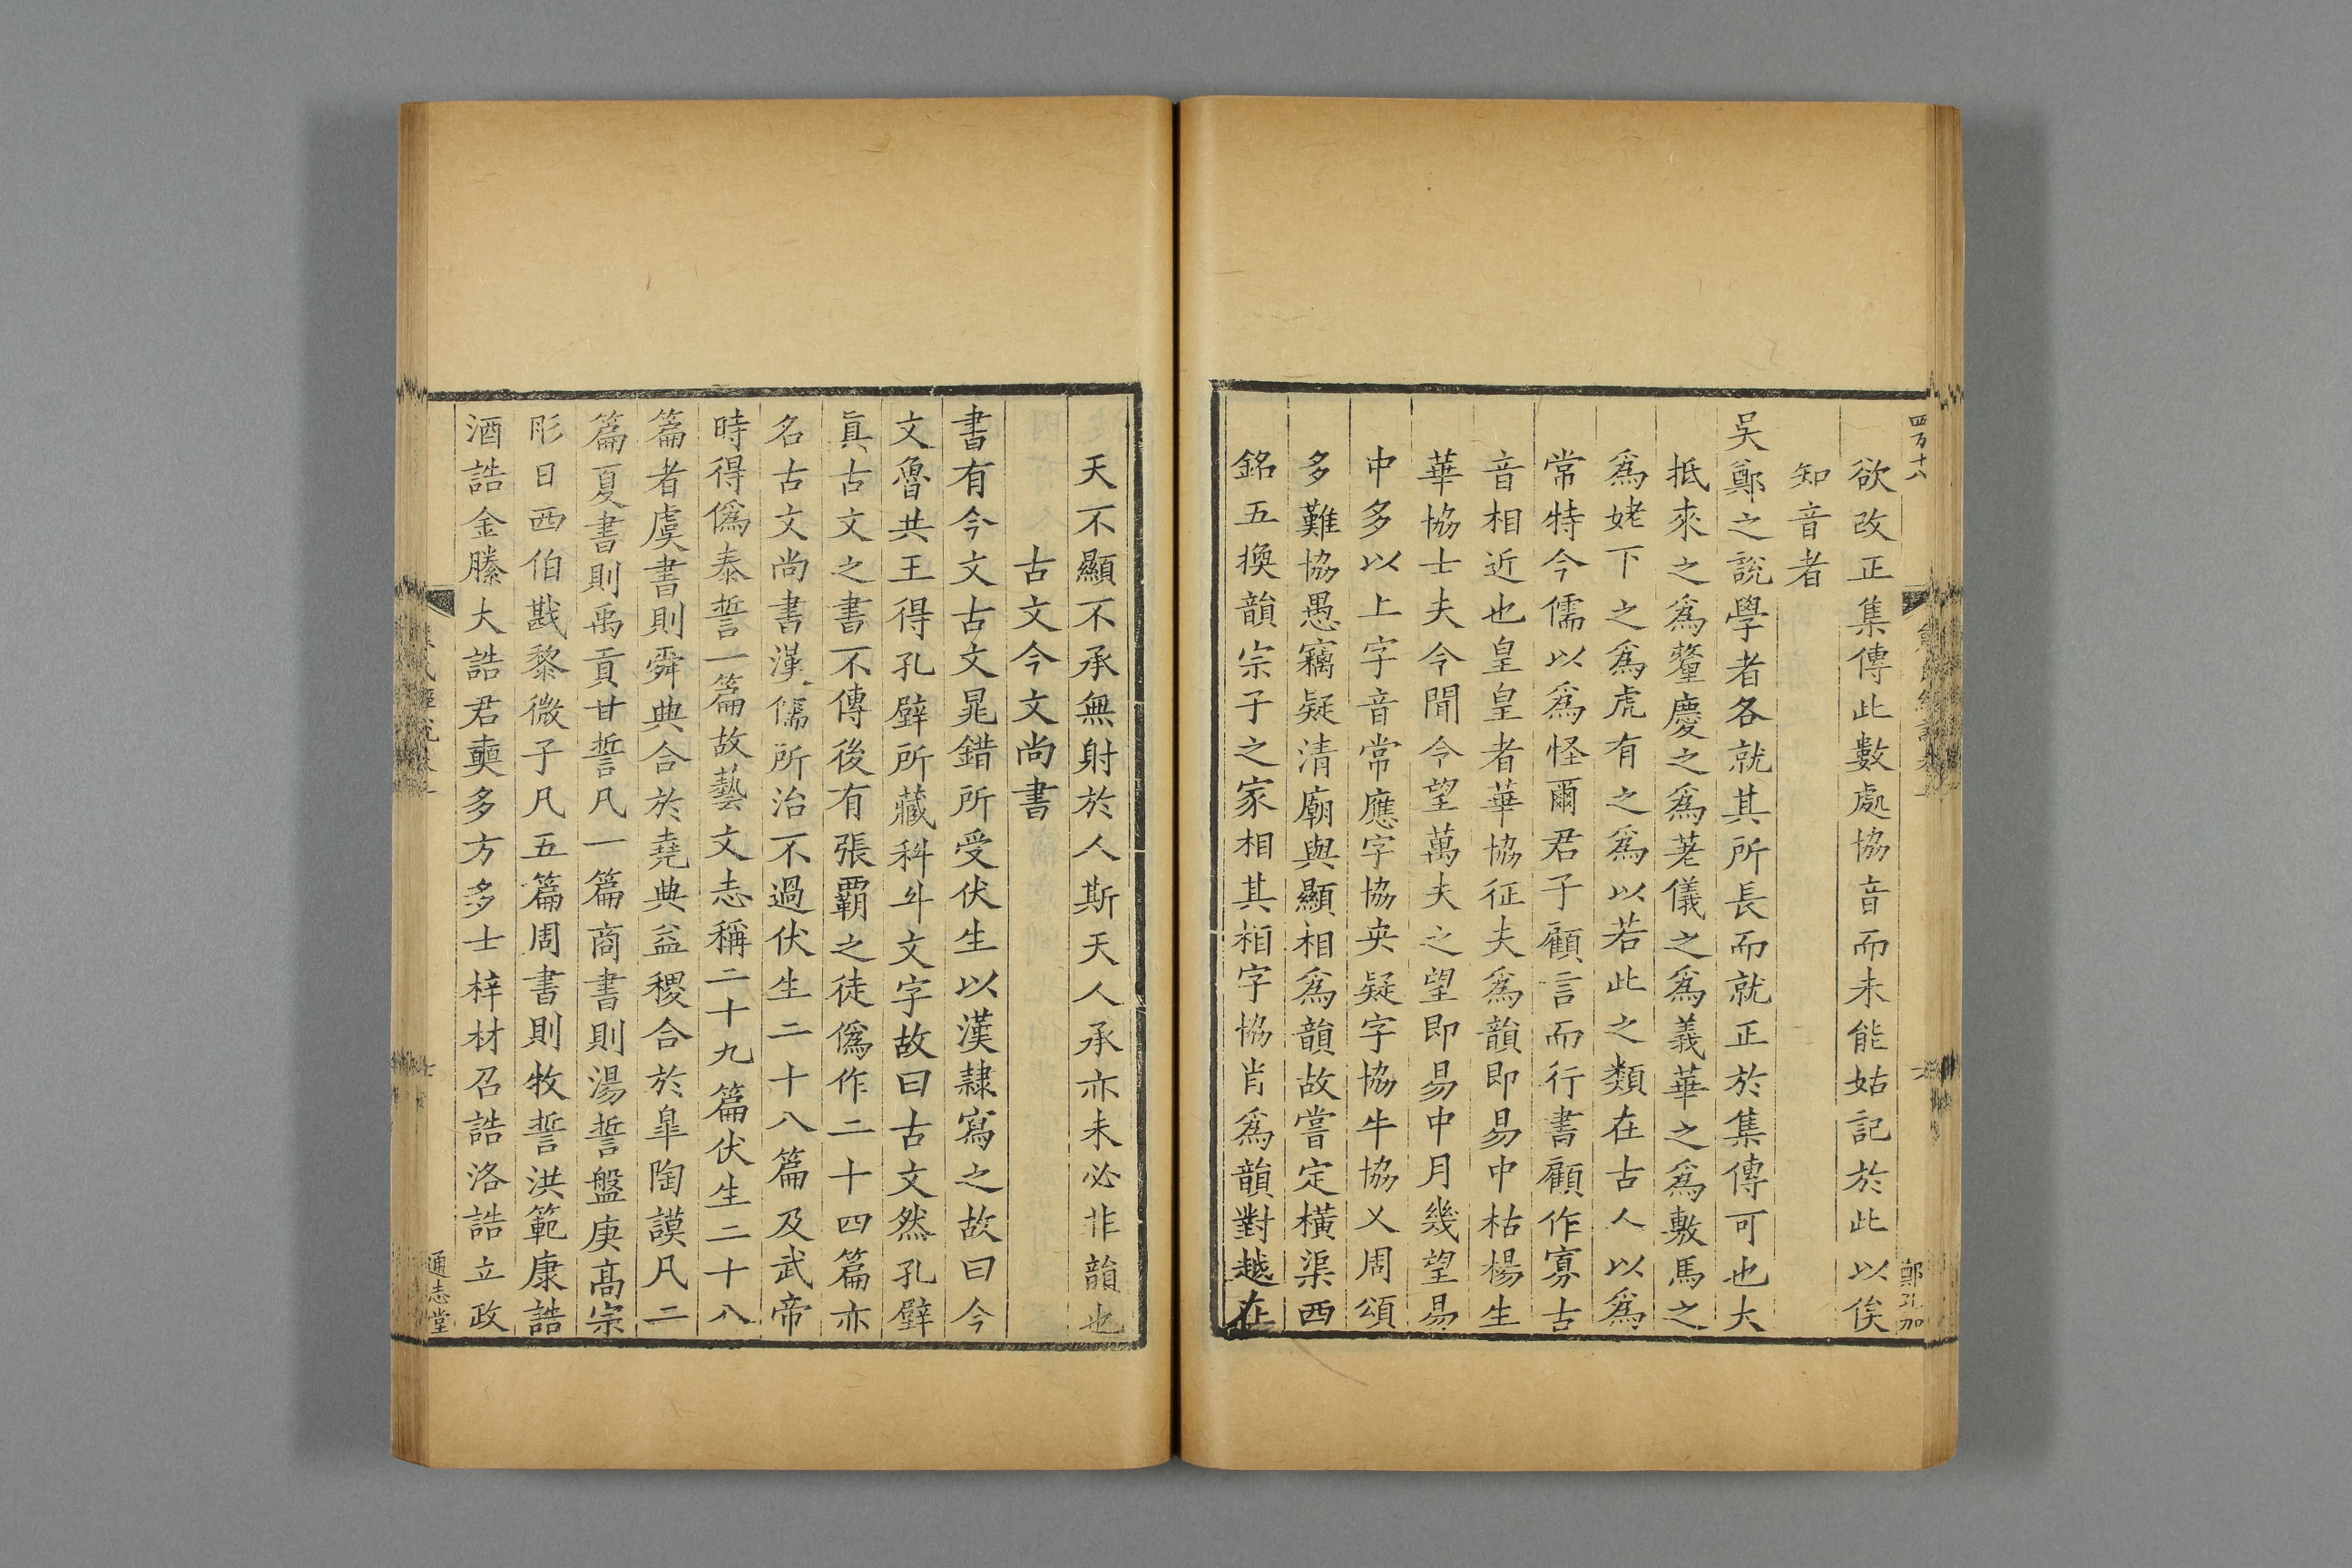 四百十八
欲改正集傳此數處協音而未能姑記於此以俟
知音者
吳鄭之說學者各就其所長而就正於集傳可也大
抵來之爲釐慶之爲羌儀之爲義華之爲敷馬之
爲姥下之爲虎有之爲以若此之類在古人以爲
常特今儒以爲怪爾君子顧言而行書顧作寡古
音相近也皇皇者華協征夫爲韻即易中枯楊生
華協士夫令聞令望萬夫之望即易中月幾望易
中多以上字音常應字協央疑字協牛協乂周頌
多難協愚竊疑清廟與顯相爲韻故嘗定橫渠西
銘五換韻宗子之家相其相字協肖爲韻對越在
鄭孔加
天不顯不承無射於人斯天人承亦未必非韻也
古文今文尚書
書有今文古文晁錯所受伏生以漢隷寫之故曰今
文魯共王得孔壁所藏科斗文字故曰古文然孔壁
眞古文之書不傳後有張霸之徒僞作二十四篇亦
名古文尚書漢儒所治不過伏生二十八篇及武帝
時得僞泰誓一篇故藝文志稱二十九篇伏生二十八
篇者虞書則舜典合於堯典益稷合於臯陶謨凡二
篇夏書則禹貢甘誓凡一篇商書則湯誓盤庚高宗
肜日西伯戡黎微子凡五篇周書則牧誓洪範康誥
酒誥金縢大誥君奭多方多士梓材召誥洛誥立政
通志堂